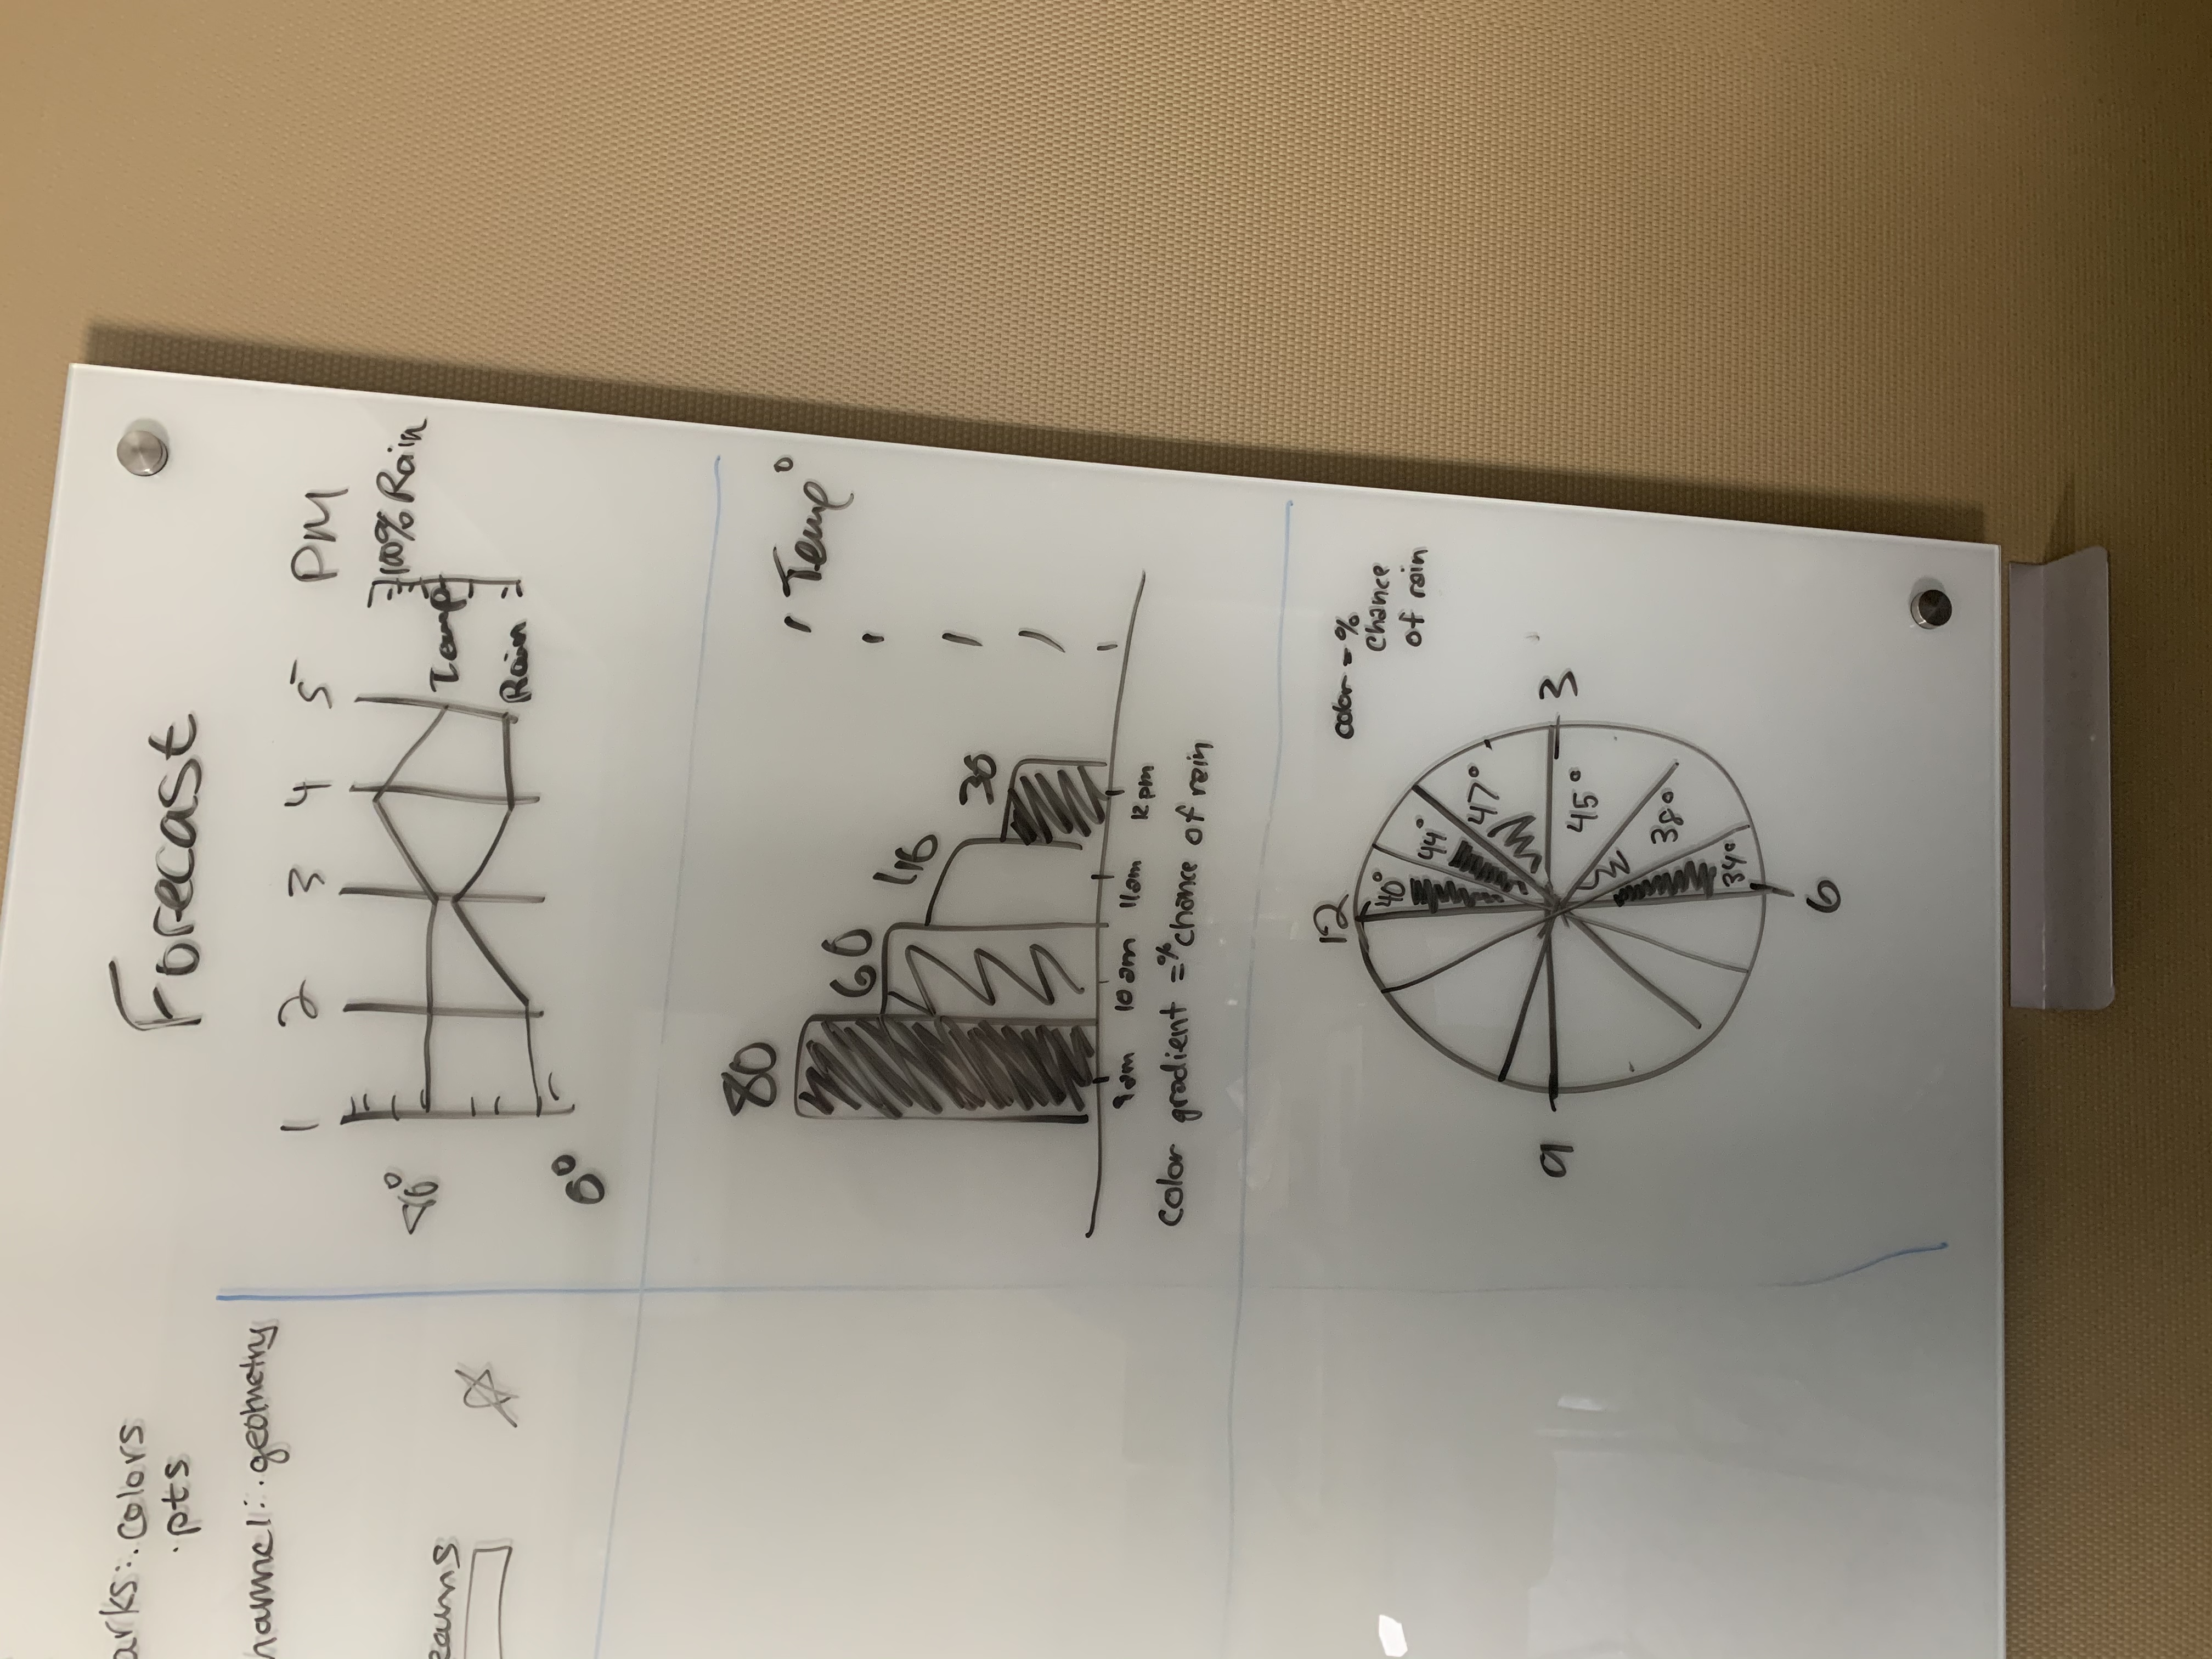 arks: . colors
. pts
hannel: . geometry
eams
Forecast
1 2 3 4 5 PM
100% Rain
Temp
Rain
0°
80
60
30
Temp°
9am 10am 11am 12pm
color gradient = % chance of rain
12
color = %
chance
of rain
40°
44°
47°
9
3
45°
38°
34°
6